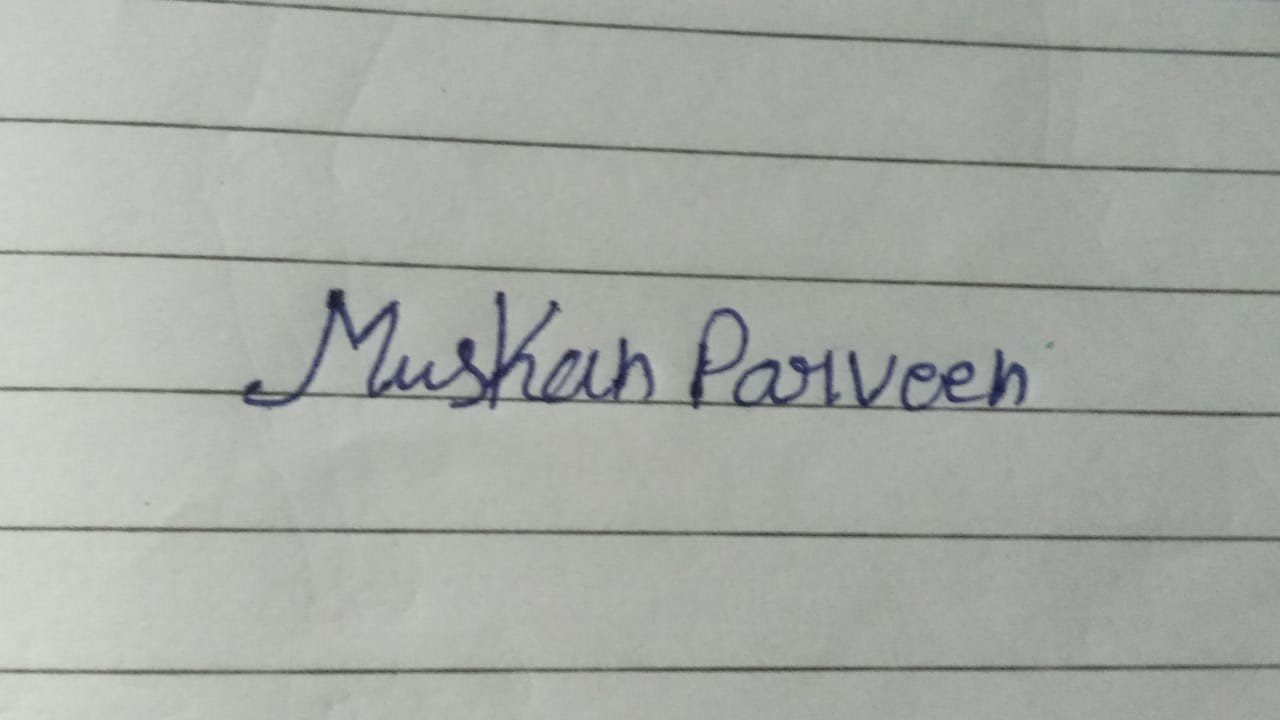 Muskan Parveen